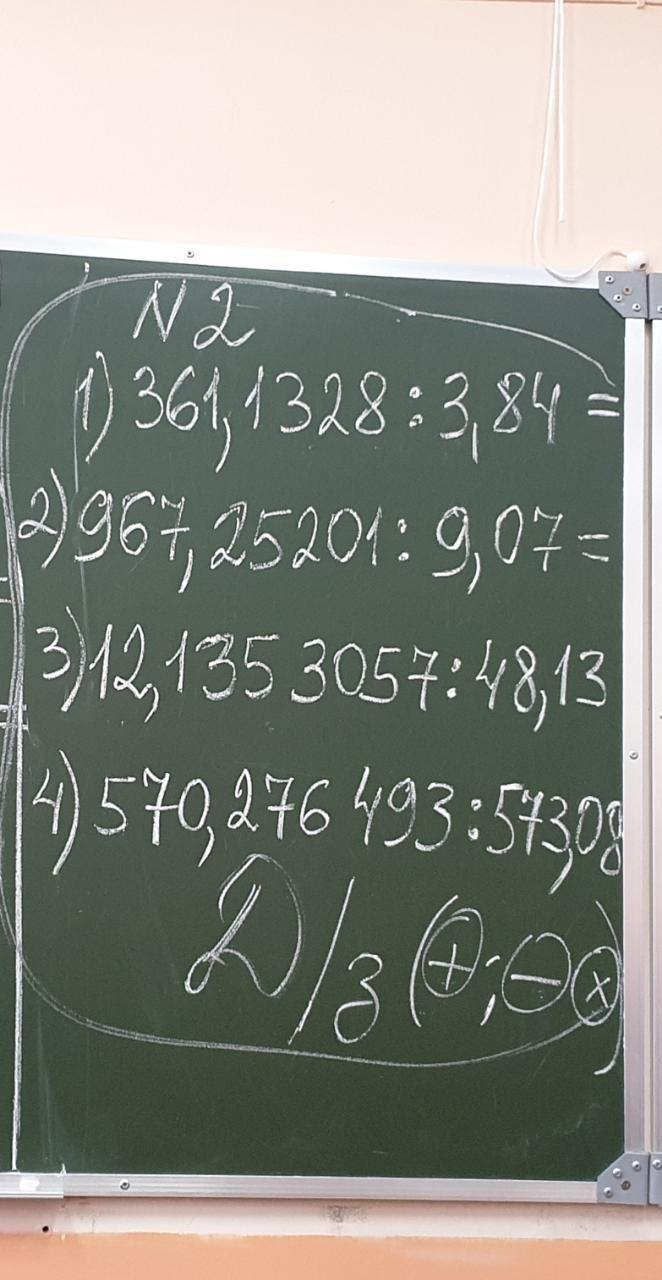 N 2
1) 361,1328 : 3,84 =
2) 967,25201 : 9,07 =
3) 12,1353057 : 48,13
4) 570,276493 : 573,08
Д/з (+; - ×)